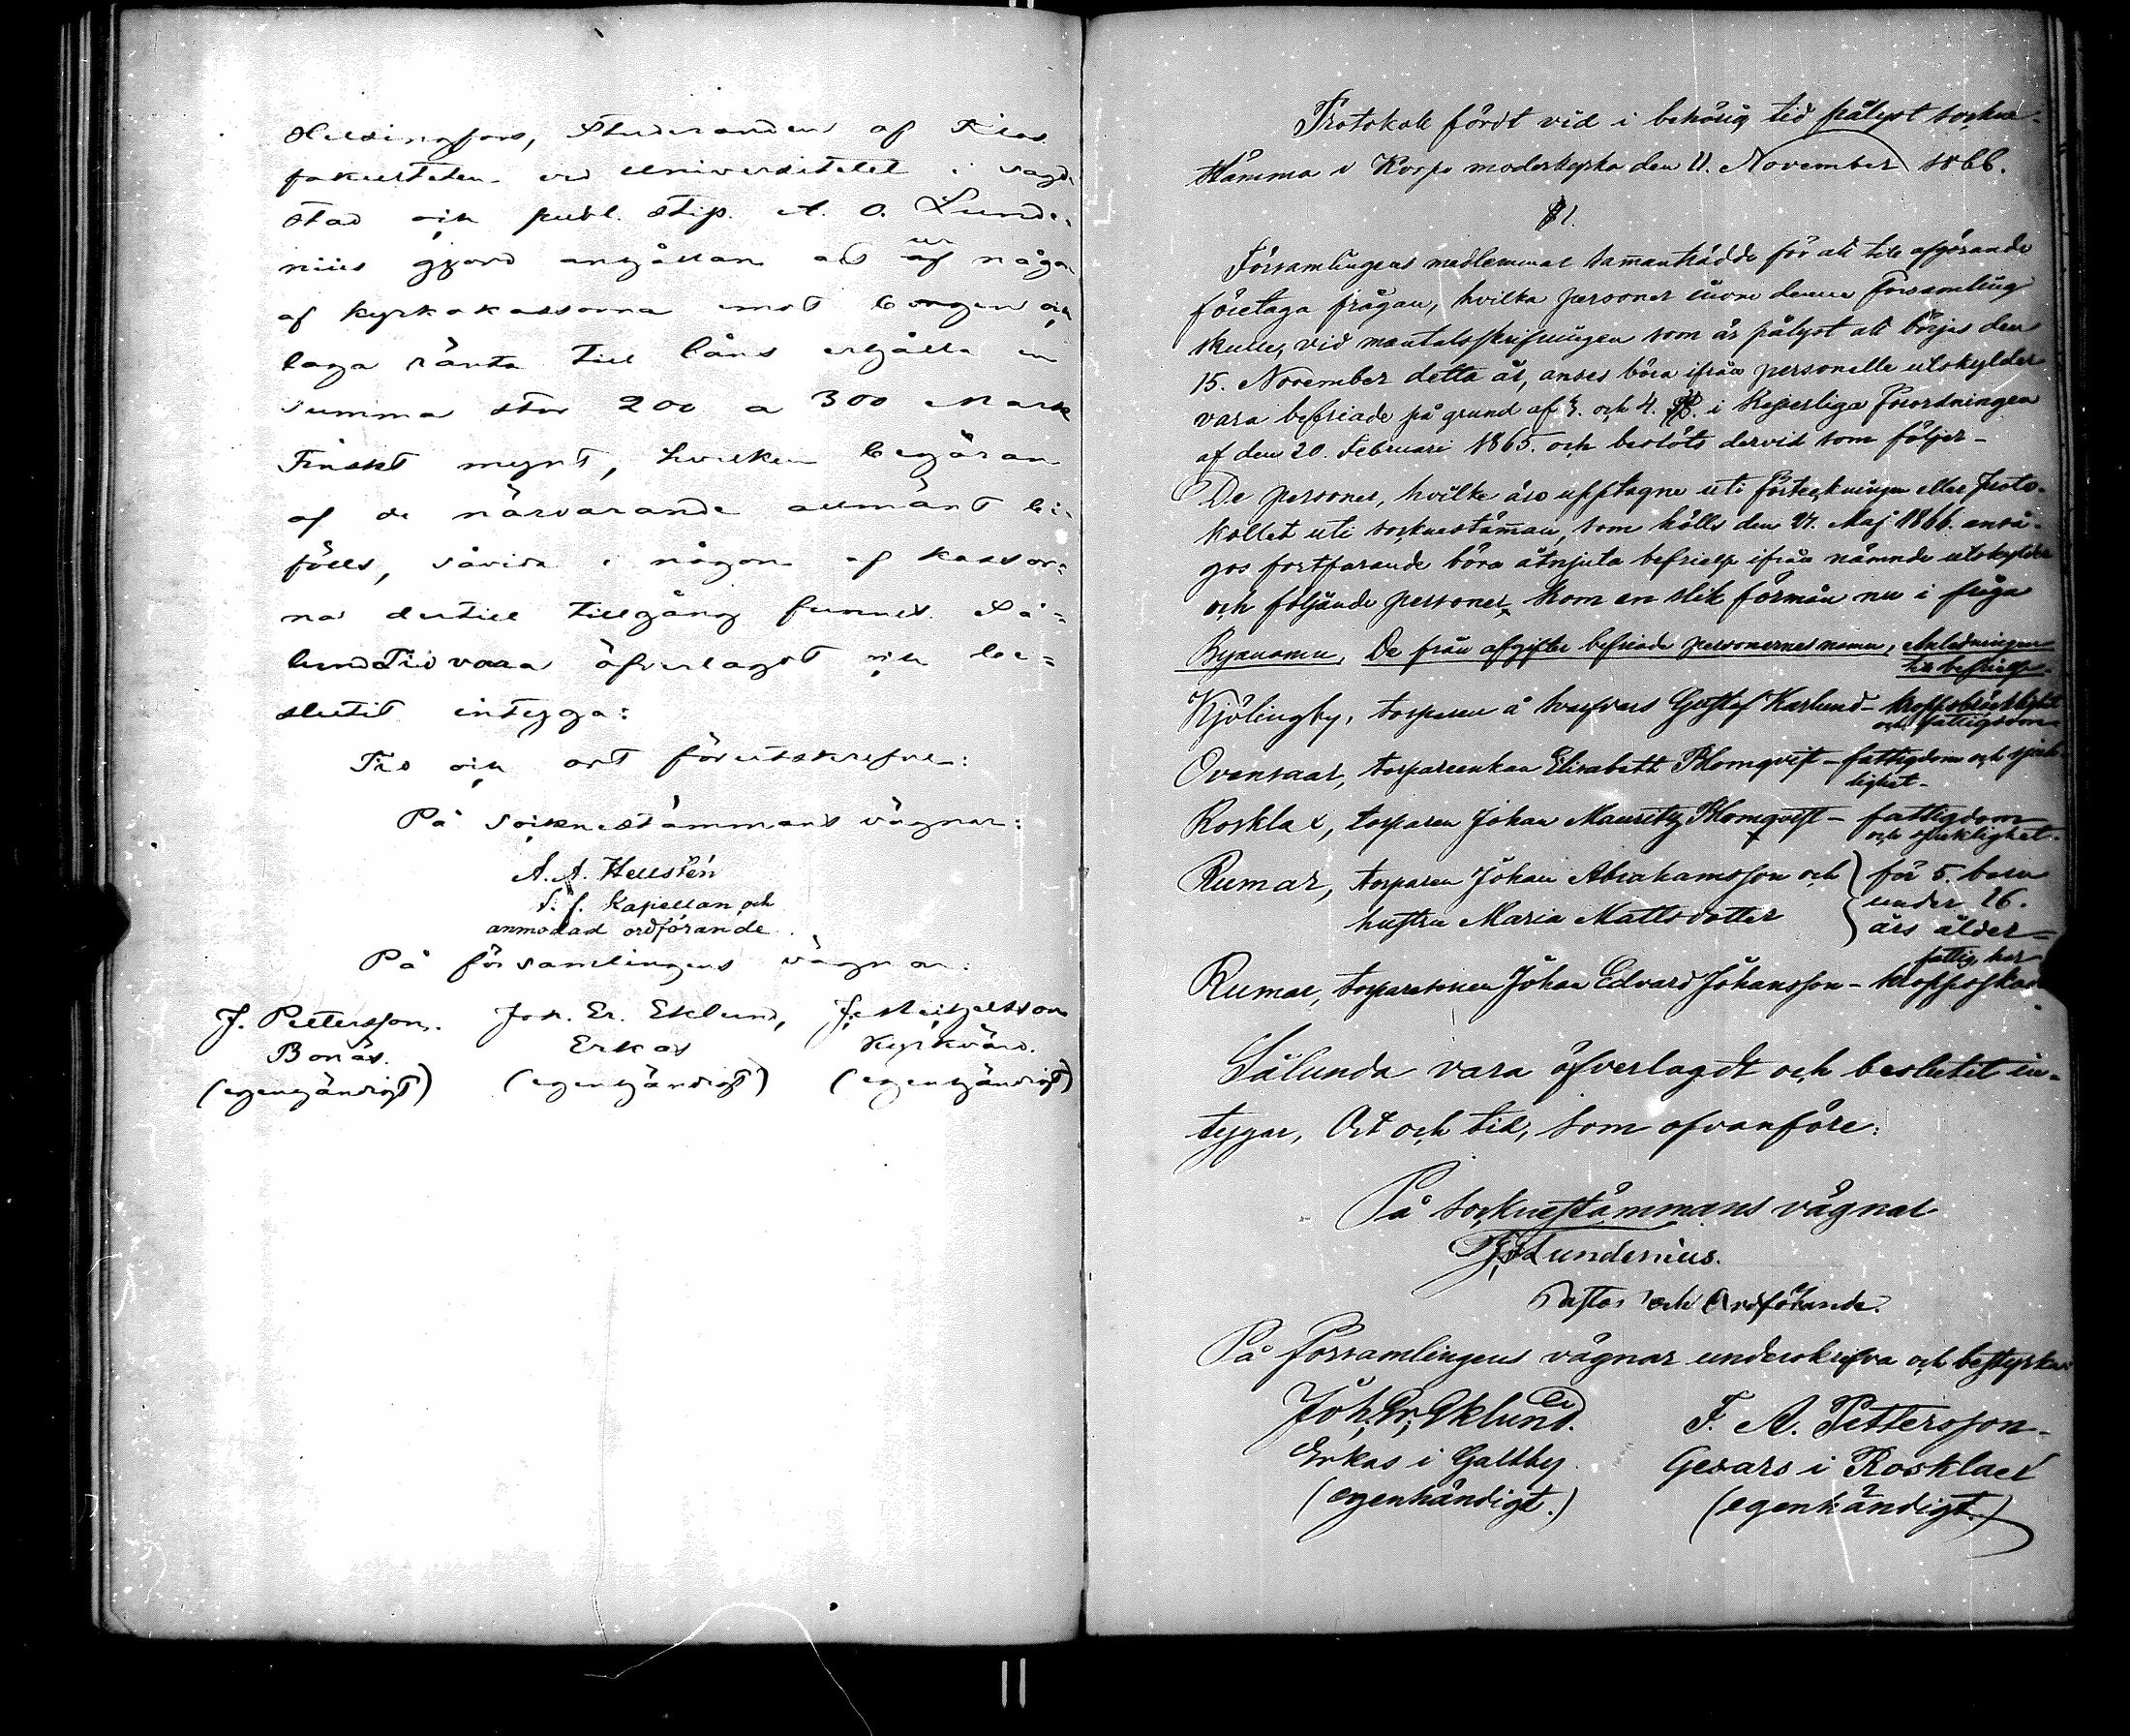 Helsingfors, Studeranden af
fakulteten vid Universitetet i sagde
stad och publ. stip. A. O. Lunde-
nius gjord anhållan att
ur
af någon
af kyrkokassorna emot borgen och
laga ränta till låns erhålla en
summa stor 200 a 300 Mark
Finskt mynt, hvilken begäran
af de närvarande allmänt bi-
fölls, såvida i någon af kassor-
na dertill tillgång funnes. Så-
lunda vara öfverlagdt och be-
slutit intyga:
Tid och ort förutskrefne:
På Socknestämmans vägnar:
A. A. Hellstén
Kapellan och
anmodad ordförande.
På församlingens vägnar:
J. Pettersson. Joh. Er. Eklund,
Bonäs. Erkas Kyrkvärd.
(egenhändigt) (egenhändigt) (egenhändigt)
Protokoll fördt vid i behörig tid pålyst sockne-
stämma i Korpo moderkyrka den 11. November 1866.
§ 1.
Församlingens medlemmar sammanträdde för att till afgörande
företaga frågan, hvilka personer inom denna församling
skulle, vid mantalsskrifningen som är pålyst att börjas den
15. November detta år, anses böra ifrån personella utskylder
vara befriade på grund af 3. och 4. §§. i Kejserliga Förordningen
af den 20. Februari 1865. och beslöts dervid som följer-
De personer, hvilka äro upptagne uti förteckningen eller Proto-
kollet uti socknestämman, som hölls den 27. Maj 1866. anså-
gos fortfarande böra åtnjuta befrielse ifrån nämnde utskylder
och följande personer kom en slik förmån nu i fråga
Bynamn, De från afgifter befriade personernes namn, Anledningen
till befrielse.
Kjölingby, torparen å Gustaf Karlund- kroppsbräcklighet
och fattigdom
Ovensaar, torpareenkan Elisabeth Blomqvist - fattigdom och sjuk-
lighet-
Rosklax, torparen Johan Mauritz Blomqvist - fattigdom
och sjuklighet-
Rumar, torparen Johan Abrahamsson och } för 5. barn
hustru Maria Mattsdotter } under 16.
års ålder-
Rumar, torparesonen Johan Edvard Johansson - fattig, har
kroppsskada
Sålunda vara öfverlagdt och beslutet in-
tygar, Ort och tid, som ofvanföre:
På Socknestämmans vägnar
Lundenius.
Pastor och Ordförande.
På Församlingens vägnar underskrifva och bestyrka:
Joh. Er. Eklund. F. A. Pettersson-
Erkas i Galtby Gesars i Rosklax
(egenhändigt.) (egenhändigt.)